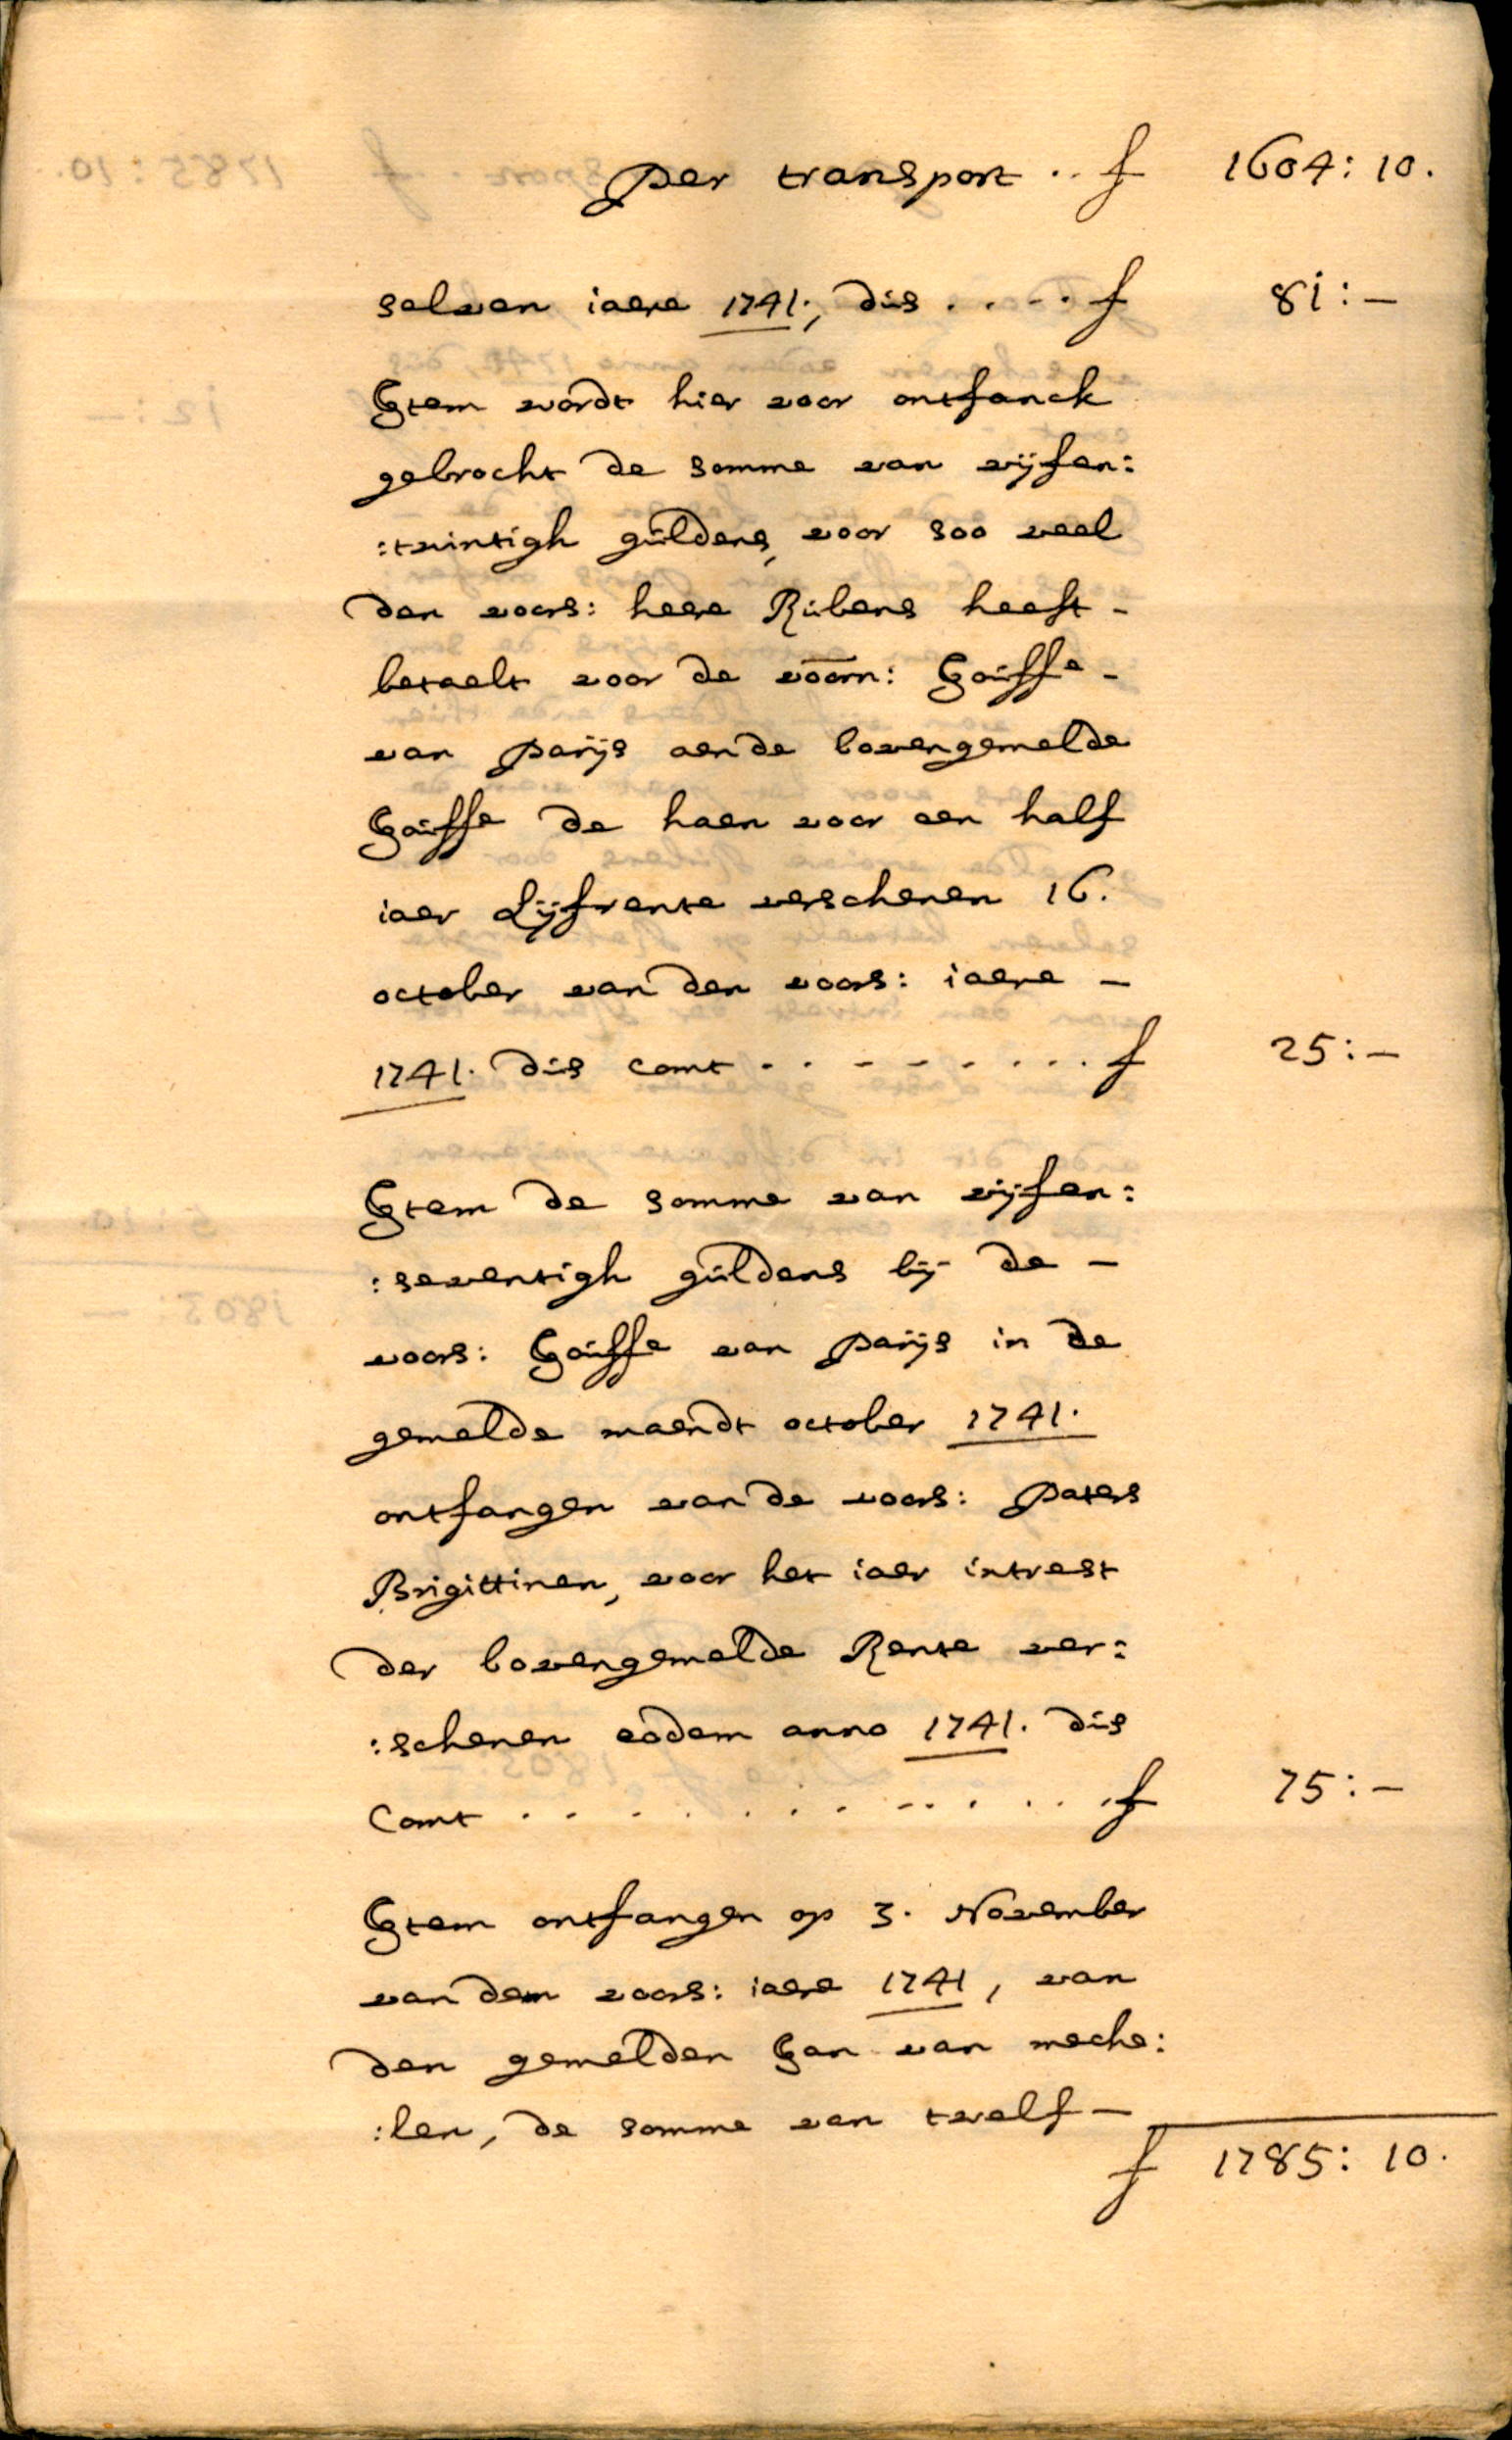 per transport .. f 1604: 10.
selven iaere 1741., dus .... f 81: –
Item wordt hier voor ontfanck
gebrocht de somme van vijfen:
:twintigh guldens, voor soo veel
den voors: heere Rubens heeft –
betaelt voor de voorn: Jouffe –
van parijs aen de bovengemelde
Jouffe de haen voor een half
iaer Lijfrente verschenen 16.
october van den voors: iaere –
1741. dus comt ......... f 25: –
Item de somme van vijfen:
:seventigh guldens bij de –
voors: Jouffe van parijs in de
gemelde maendt october 1741.
ontfangen van de voors: paters
Brigittinen, voor het iaer intrest
der bovengemelde Rente ver:
:schenen eodem anno 1741. dus
comt ............ f 75: –
Item ontfangen op 3. November
van den voors: iaere 1741, van
den gemelden Jan van meche:
:len, de somme van twelf –
f 1785: 10.